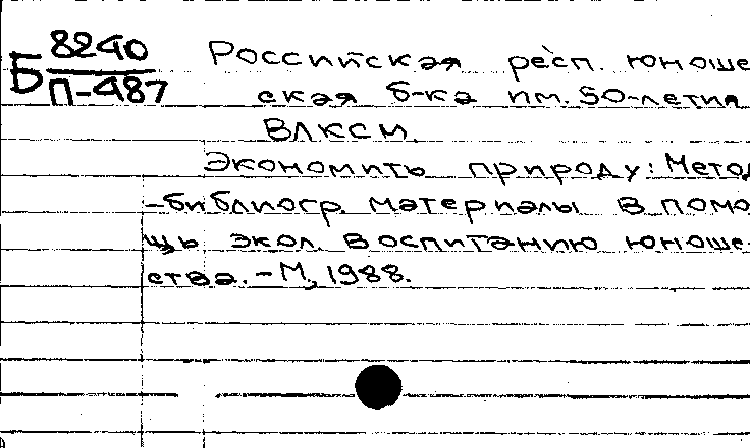 Б 8240
П-487
Российская респ. юноше
ская б-ка им. 50-летия
ВЛКСМ.
Экономить природу: Метод
-библиогр. материалы в помо
щь экол. воспитанию юноше-
ства. - М., 1988.